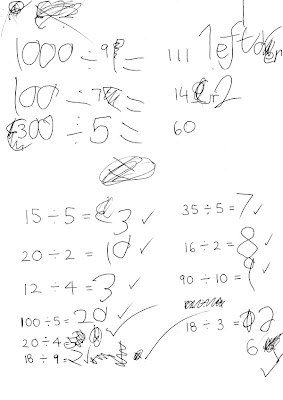 1000 ÷ 9 = 111 left over
100 ÷ 7 = 14 r2
300 ÷ 5 = 60
15 ÷ 5 = 3 ✓
35 ÷ 5 = 7 ✓
20 ÷ 2 = 10 ✓
16 ÷ 2 = 8 ✓
12 ÷ 4 = 3 ✓
90 ÷ 10 = 9 ✓
100 ÷ 5 = 20 ✓
18 ÷ 3 =
6 ✓
20 ÷ 4 =
18 ÷ 9 = 2